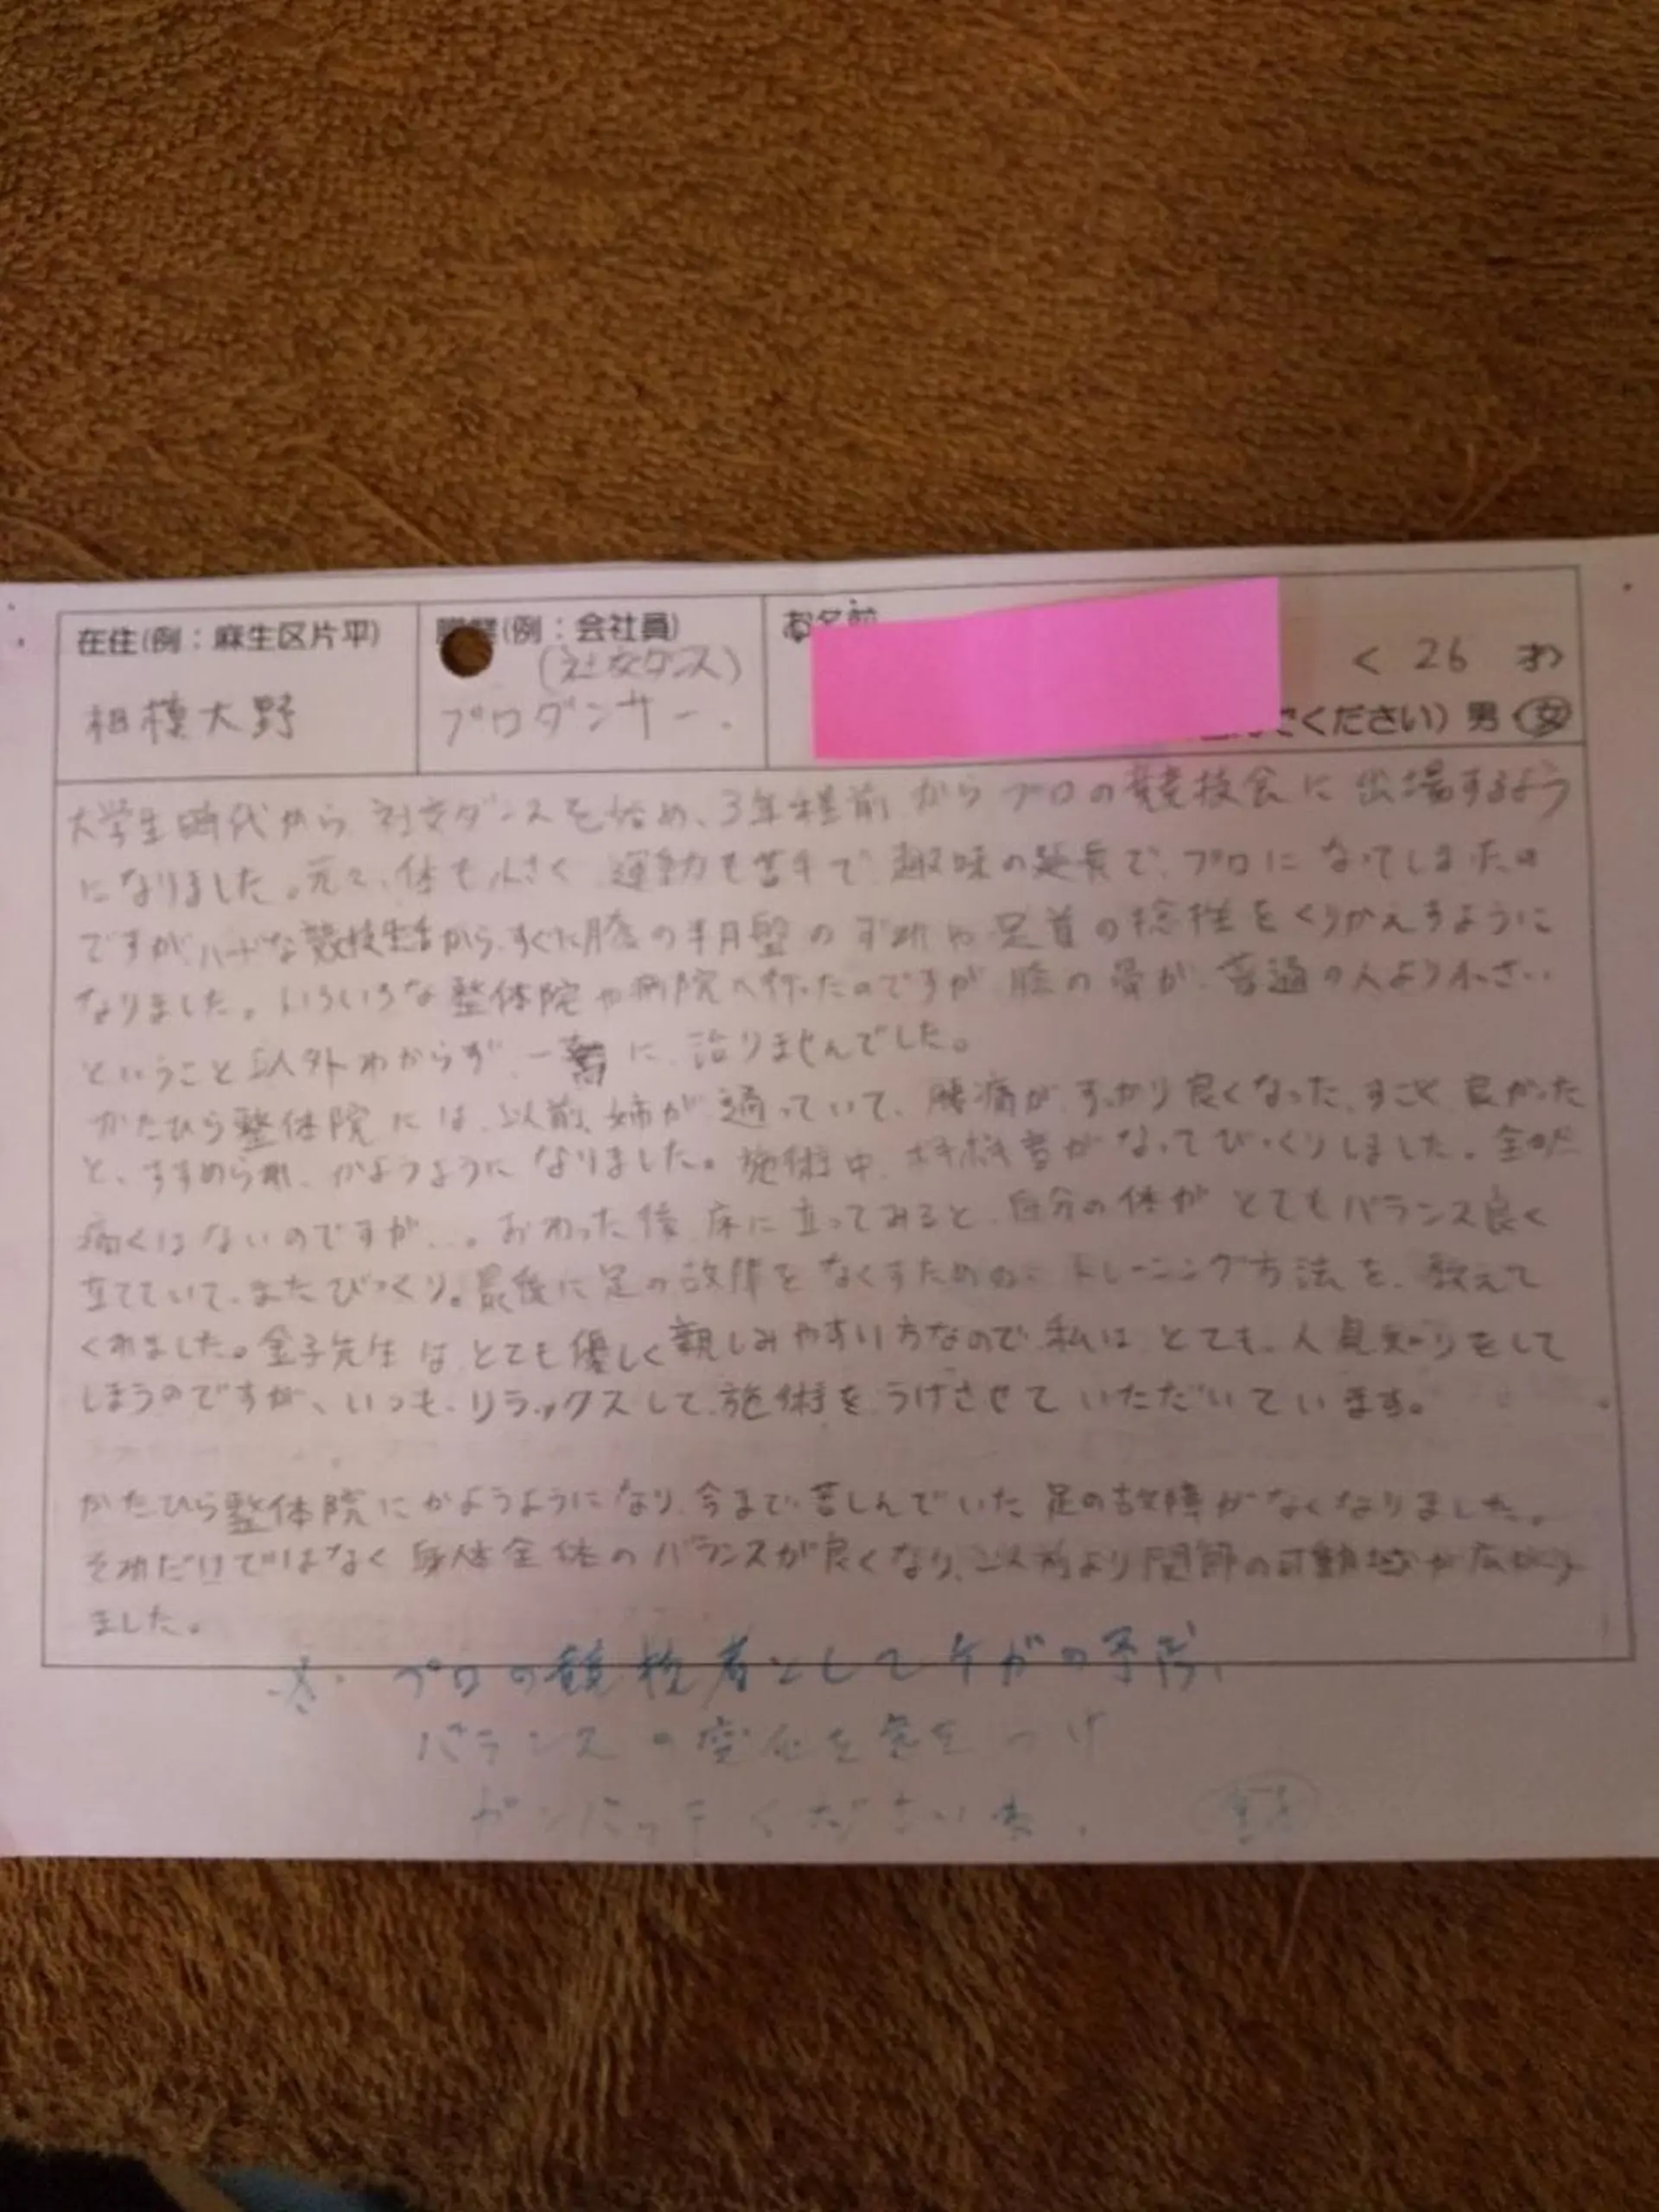 在住(例：麻生区片平)
相模大野
(例：会社員)
(社交ダンス)
プロダンサー.
お名前
< 26 才>
でください) 男 女
大学生時代から社交ダンスを始め、3年程前からプロの競技会に出場するよう
になりました。元々、体も小さく運動も苦手で趣味の延長で、プロになってしまったの
ですが、ハードな競技生活から、すぐに膝の半月盤のずれや足首の捻挫をくりかえすように
なりました。いろいろな整体院や病院へ行ったのですが膝の骨が、普通の人より小さい
ということ以外わからず、一向に、治りませんでした。
かたひら整体院には、以前、姉が通っていて、腰痛が、すっかり良くなった、すごく良かった
と、すすめられ、かようようになりました。施術中、ボキボキ音がなってびっくりしました。全然
痛くはないのですが…。おわった後、床に立ってみると、自分の体がとてもバランス良く
立てていて、またびっくり。最後に足の故障をなくすための、トレーニング方法を、教えて
くれました。金子先生は、とても優しく親しみやすい方なので、私は、とても、人見知りをして
しまうのですが、いつも、リラックスして、施術を、うけさせていただいています。
かたひら整体院にかようようになり、今まで苦しんでいた足の故障がなくなりました。
それだけではなく身体全体のバランスが良くなり、以前より関節の可動域が広がり
ました。
プロの競技者としてケガの予防、
バランスの変化を気をつけ
ガンバってくださいね.